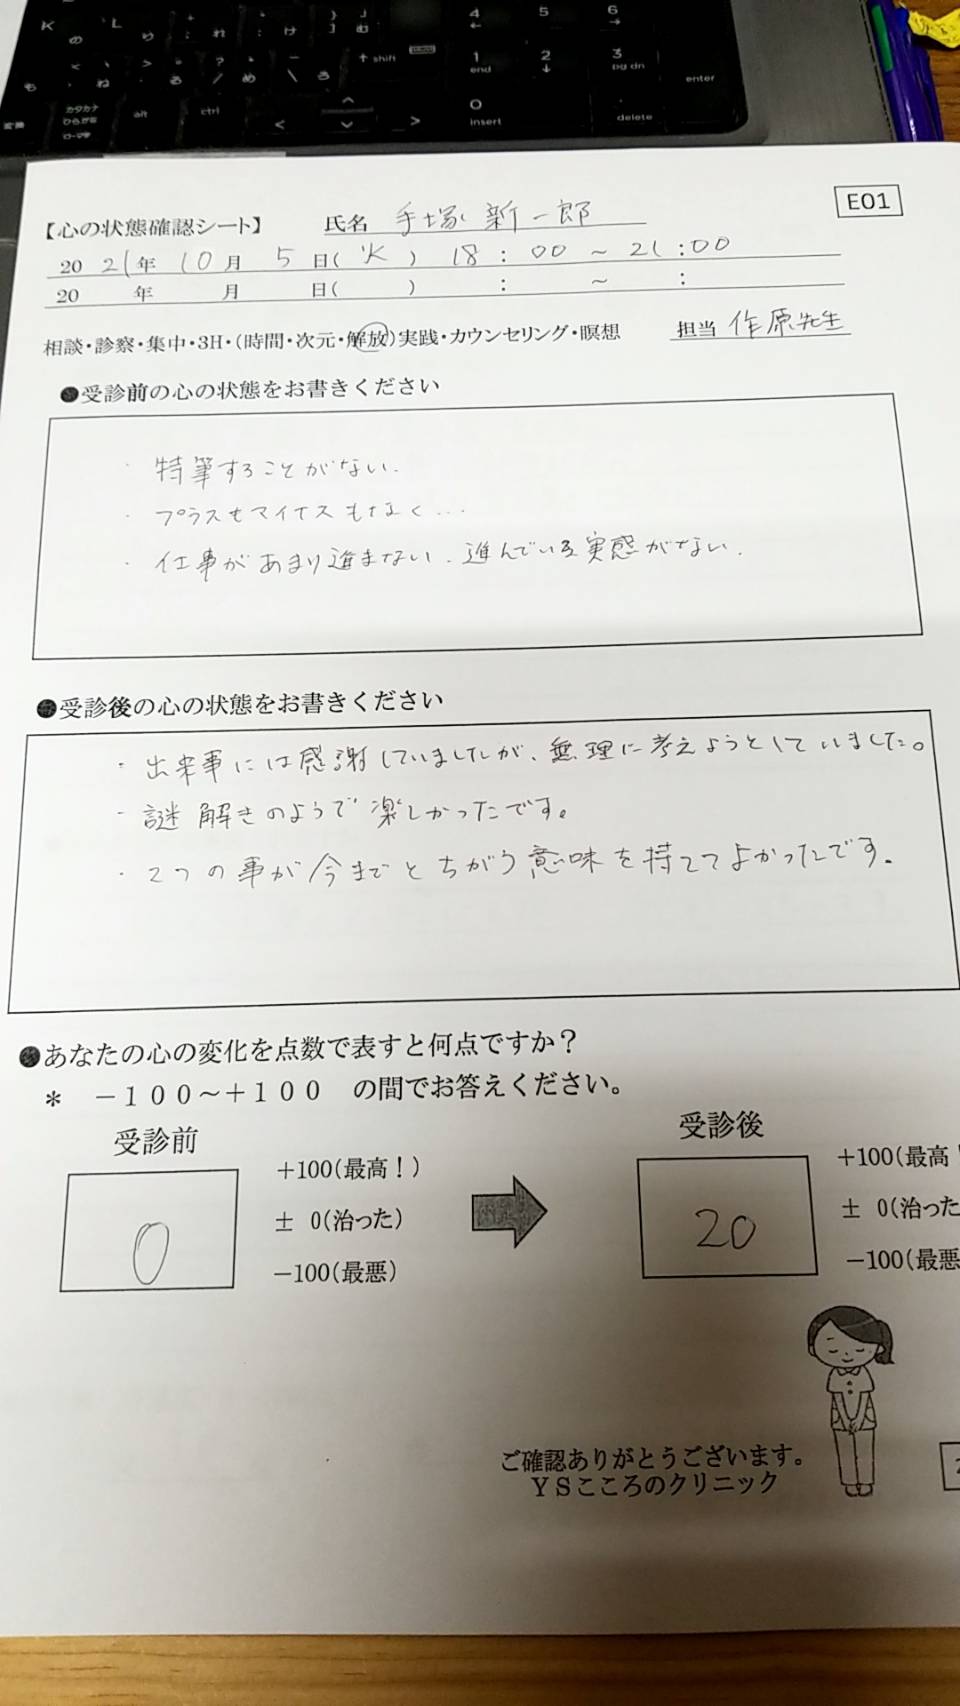 E01
【心の状態確認シート】 氏名 手塚 新一郎
2021年 10月 5日(火) 18:00 ~ 21:00
20 年 月 日( ) : ~ :
相談・診察・集中・3H・(時間・次元・解放)実践・カウンセリング・瞑想 担当 作原先生
●受診前の心の状態をお書きください
・特筆することがない.
・プラスもマイナスもなく…
・仕事があまり進まない.進んでいる実感がない.
●受診後の心の状態をお書きください
・出来事には感謝していましたが、無理に考えようとしていました。
・謎解きのようで楽しかったです。
・2つの事が今までとちがう意味を持ててよかったです.
●あなたの心の変化を点数で表すと何点ですか?
* -100~+100 の間でお答えください。
受診前 受診後
+100(最高!) +100(最高
0 ± 0(治った) 20 ± 0(治った
-100(最悪) -100(最悪
ご確認ありがとうございます。
YSこころのクリニック